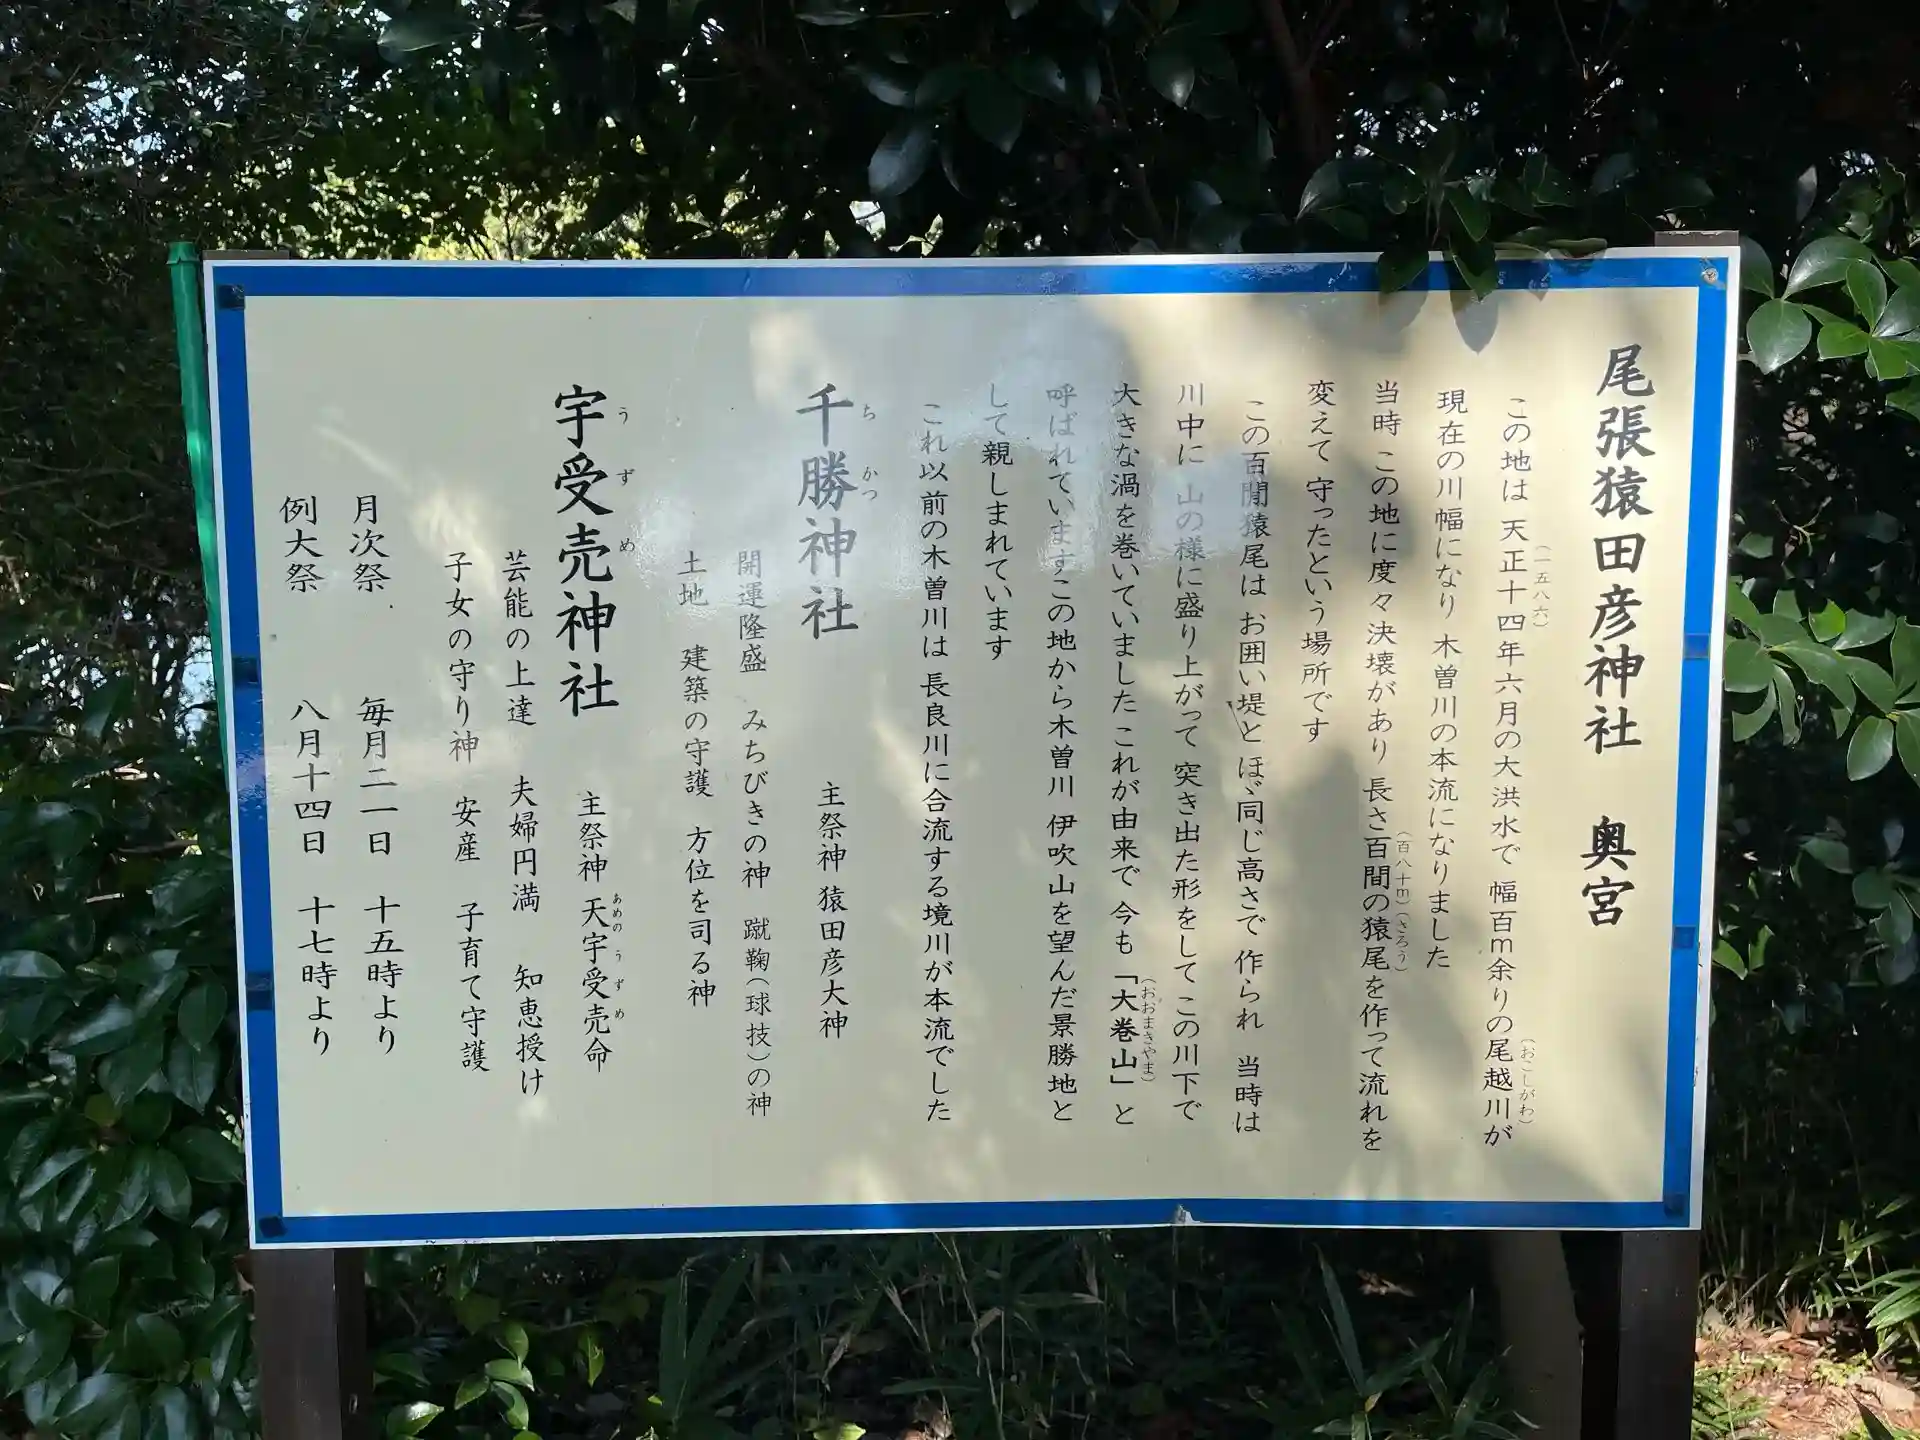 尾張猿田彦神社　奥宮
この地は 天正十四年(一五八六)六月の大洪水で 幅百m余りの尾越川(おこしがわ)が
現在の川幅になり 木曽川の本流になりました
当時 この地に度々決壊があり 長さ百間(百八十m)の猿尾(さろう)を作って流れを
変えて 守ったという場所です
この百間猿尾は お囲い堤と ほゞ同じ高さで 作られ 当時は
川中に 山の様に盛り上がって 突き出た形をして この川下で
大きな渦を巻いていました これが由来で 今も「大巻山(おおまきやま)」と
呼ばれています この地から木曽川 伊吹山を望んだ景勝地と
して親しまれています
これ以前の木曽川は 長良川に合流する境川が本流でした
千勝神社　主祭神 猿田彦大神
ち かつ
開運隆盛　みちびきの神　蹴鞠(球技)の神
土地　建築の守護　方位を司る神
宇受売神社　主祭神 天宇受売命
う ず め　あめの う ず め
芸能の上達　夫婦円満　知恵授け
子女の守り神　安産　子育て守護
月次祭　毎月二一日　十五時より
例大祭　八月十四日　十七時より